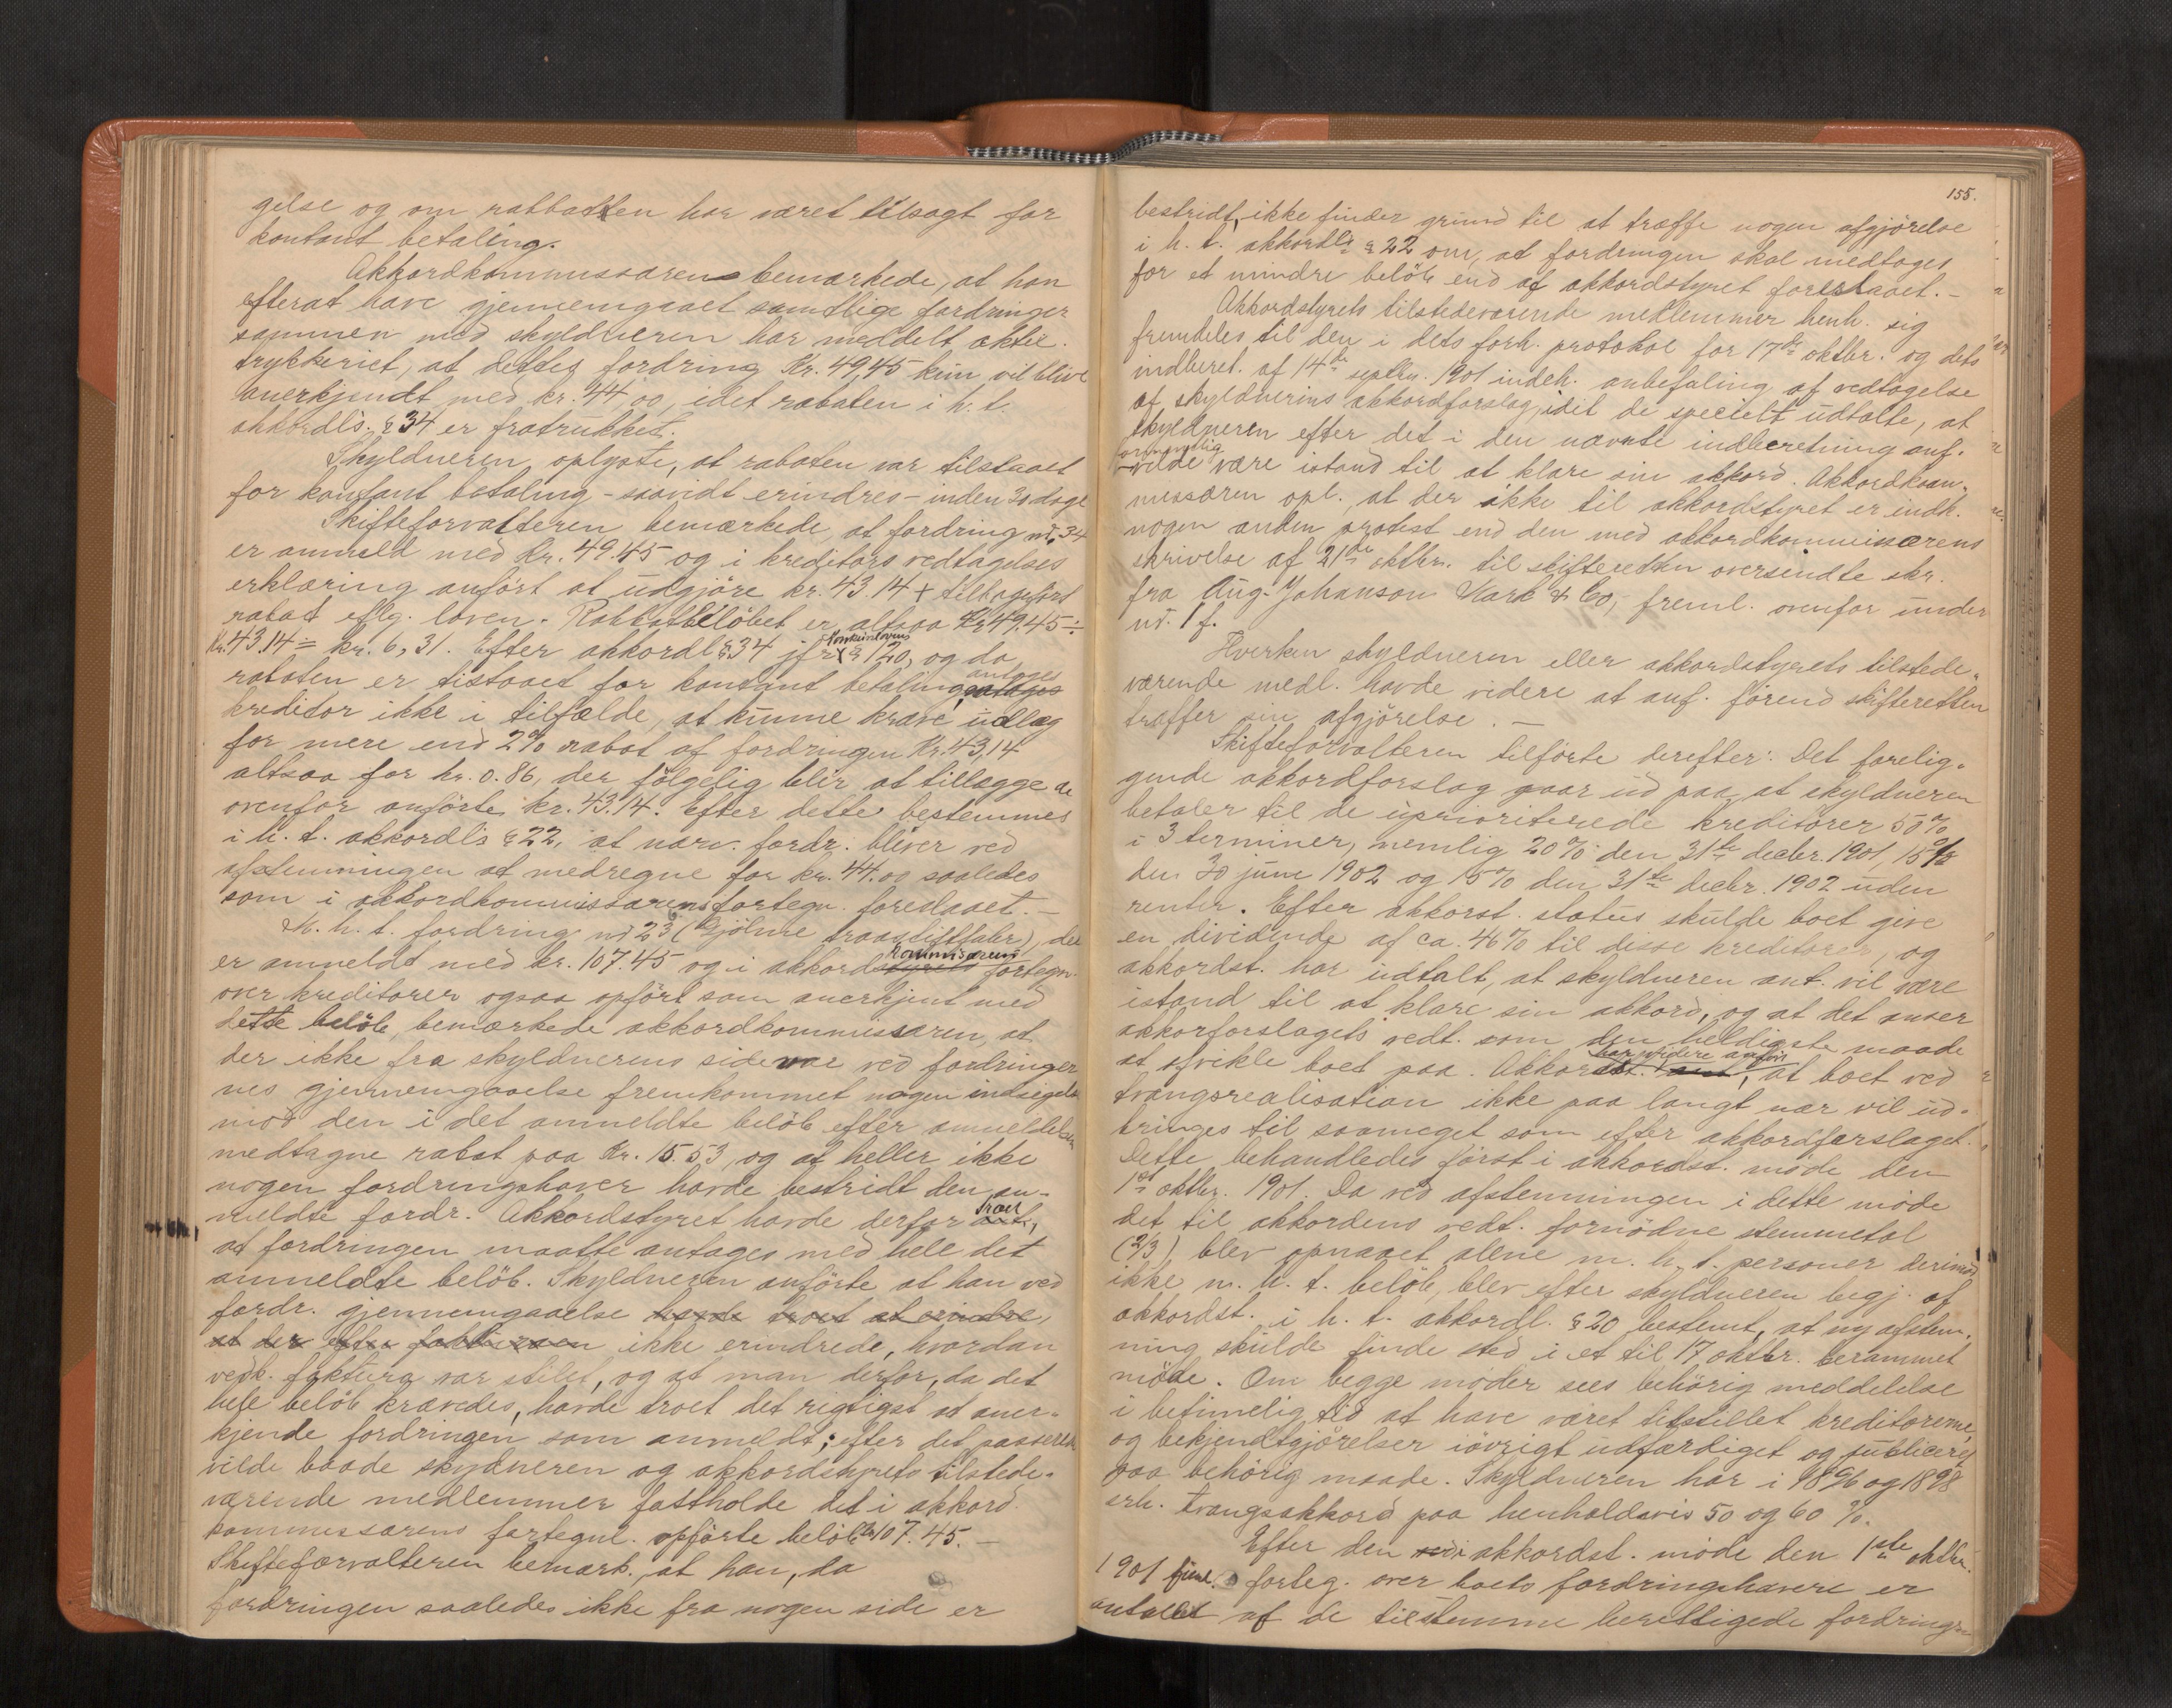 gelse og om rabbatten har været tilsagt for
kontant betaling.
Akkordkommissæren bemærkede, at han
efterat have gjennemgaaet samtlige fordringer
sammen med skyldneren har meddelt aktie-
trykkeriet, at dettes fordring Kr. 49,45 kun vil blive
anerkjendt med kr. 44,00, idet rabaten i h. t.
akkordls. § 34 er fratrukket.
Skyldneren oplyste, at rabaten var tilstaaet
for kontant betaling - saavidt erindres - inden 30 dage
Skifteforvalteren bemærkede, at fordring nr. 34
er anmeld med Kr. 49.45 og i kreditors vedtagelses
erklæring anført at udgjøre kr. 43.14 + tilbageført
rabat eflg. loven. Rabbatbeløbet er altsaa Kr 49.45 ÷
Kr. 43.14 = kr. 6,31. Efter akkordl § 34 jfr Konkurslovens § 120, og da
rabaten er tistaaet for kontant betaling, antages
kreditor ikke i tilfælde, at kunne kræve udlæg
for mere end 2% rabat af fordringen Kr. 43,14
altsaa for kr. 0.86, der følgelig blir at tillægge de
ovenfor anførte kr. 43.14. Efter dette bestemmes
i h. t. akkordls § 22, at nærv. fordr. bliver ved
afstemningen at medregne for kr. 44.00 saaledes
som i akkordkommissærens fortegn. foreslaaet. -
M. h. t. fordring nr 23 (Gjølme traastiftfabr), der
er anmeldt med kr. 107.45 og i akkordkommisærens fortegn.
over kreditorer ogsaa opført som anerkjent med
dette beløb, bemærkede akkordkommissæren, at
der ikke fra skyldnerens side var ved fordringer
nes gjennemgaaelse fremkommet nogen indsigelse
mod den i det anmeldte beløb efter anmeldelsen
medtagne rabat paa Kr. 15.53, og at heller ikke
nogen fordringshaver havde bestridt den an-
meldte fordr. Akkordstyret havde derfor troet,
at fordringen maatte antages med hele det
anmeldte beløb. Skyldneren anførte at han ved
fordr. gjennemgaaelse havde troet at erindre,
at der efter fakturaen ikke erindrede, hvordan
vedk. faktura var stilet, og at man derfor, da det
hele beløb krævedes, havde troet det rigtigst at aner-
kjende fordringen som anmeldt; efter det passerede
vilde baade skydneren og akkordstyrets tilstede-
værende medlemmer fastholde det i akkord-
kommissærens fortegnl. opførte beløb Kr 107.45. -
Skifteforvalteren bemærk., at han, da
fordringen saaledes ikke fra nogen side er
155.
bestridt, ikke finder grund til at træffe nogen afgjørelse
i h. t. akkordls § 22 om, at fordringen skal medtages
for et mindre beløb end af akkordstyret foreslaaet. -
Akkordstyrets tilstedeværende medlemmer henh. sig
fremdeles til den i dets forh. protokol for 17de oktbr. og dets
indberet. af 14de septbr. 1901 indeh. anbefaling af vedtagelse
af skyldnerens akkordforslag, idet de specielt udtalte, at
skyldneren efter det i den nævnte indberetning anf.
vilde være istand til at klare sin akkord. Akkordkom-
missæren opl., at der ikke til akkordstyret er indk.
nogen anden protest end den med akkordkommissærens
skrivelse af 21de oktbr. til skifteretten oversendte skr.
fra Aug. Johanson Wark & Co, freml. ovenfor under
nr. 1 f.
Hverken skyldneren eller akkordstyrets tilstede-
værende medl. havde videre at anf. førend skifteretten
træffer sin afgjørelse. -
Skifteforvalteren tilførte derefter: Det forelig-
gende akkordforslag gaar ud paa, at skyldneren
betaler til de uprioriterede kreditorer 50%
i 3 terminer, nemlig 20% den 31te decbr. 1901, 15%
den 30 juni 1902 og 15% den 31te decbr. 1902 uden
renter. Efter akkorst. status skulde boet give
en dividende af ca. 46% til disse kreditorer, og
akkordst. har udtalt, at skyldneren ant. vil være
istand til at klare sin akkord, og at det anser
akkorforslagets vedt. som den heldigste maade
at afvikle boet paa. Akkordst. har videre anført, at boet ved
tvangsrealisation ikke paa langt nær vil ud-
bringes til saameget som efter akkordforslaget.
Dette behandledes først i akkordst. møde den
1ste oktbr. 1901. Da ved afstemningen i dette møde
det til akkordens vedt. fornødne stemmetal
(2/3) blev opnaaet alene m. h. t. personer derimod
ikke m. h. t. beløb, blev efter skyldneren begj. af
akkordst. i h. t. akkordl. § 20 bestemt, at ny afstem-
ning skulde finde sted i et til 17 oktbr. berammet
møde. Om begge møder sees behørig meddelelse
i betimelig tid at have været tilstillet kreditorerne,
og bekjendtgjørelser iøvrigt udfærdiget og publiceret
paa behørig maade. Skyldneren har i 1896 og 1898
erh. tvangsakkord paa henholdsvis 50 og 60 %.
Efter den i akkordst. møde den 1ste oktbr.
1901 forteg. over boets fordringshavere er
antallet af de tilstemme berettigede fordrings-